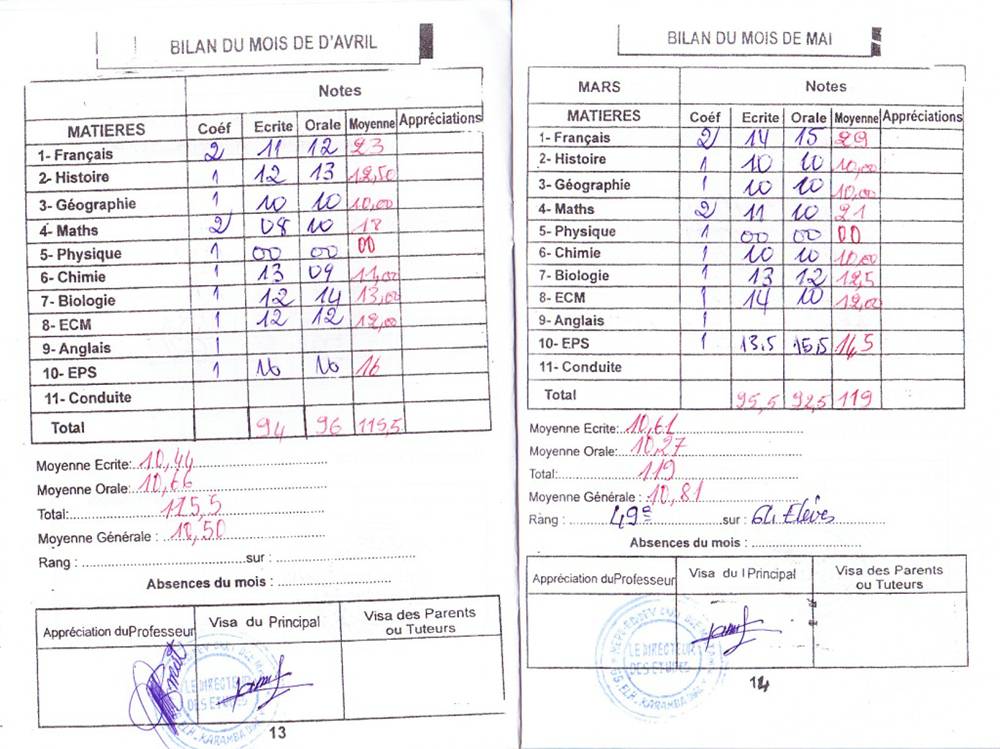 BILAN DU MOIS DE D'AVRIL
Notes
MATIERES Coéf Ecrite Orale Moyenne Appréciations
1- Français 2 11 12 23
2- Histoire 1 12 13 12,50
3- Géographie 1 10 10 10,00
4- Maths 2 08 10 18
5- Physique 1 00 00 00
6- Chimie 1 13 09 11,00
7- Biologie 1 12 14 13,00
8- ECM 1 12 12 12,00
9- Anglais 1
10- EPS 1 16 16 16
11- Conduite
Total 94 96 115,5
Moyenne Ecrite: 10,44
Moyenne Orale: 10,66
Total: 115,5
Moyenne Générale : 10,50
Rang : sur :
Absences du mois :
Appréciation du Professeur Visa du Principal Visa des Parents ou Tuteurs
LE DIRECTEUR
DES ETUDES
13
BILAN DU MOIS DE MAI
MARS Notes
MATIERES Coéf Ecrite Orale Moyenne Appréciations
1- Français 2 14 15 29
2- Histoire 1 10 10 10,00
3- Géographie 1 10 10 10,00
4- Maths 2 11 10 21
5- Physique 1 00 00 00
6- Chimie 1 10 10 10,00
7- Biologie 1 13 12 12,5
8- ECM 1 14 10 12,00
9- Anglais 1
10- EPS 1 13.5 15,5 14,5
11- Conduite
Total 95,5 92,5 119
Moyenne Ecrite: 10,61
Moyenne Orale: 10,27
Total: 119
Moyenne Générale : 10,81
Rang : 49e sur : 64 Elèves
Absences du mois :
Appréciation du Professeur Visa du l Principal Visa des Parents ou Tuteurs
LE DIRECTEUR
DES ETUDES
14